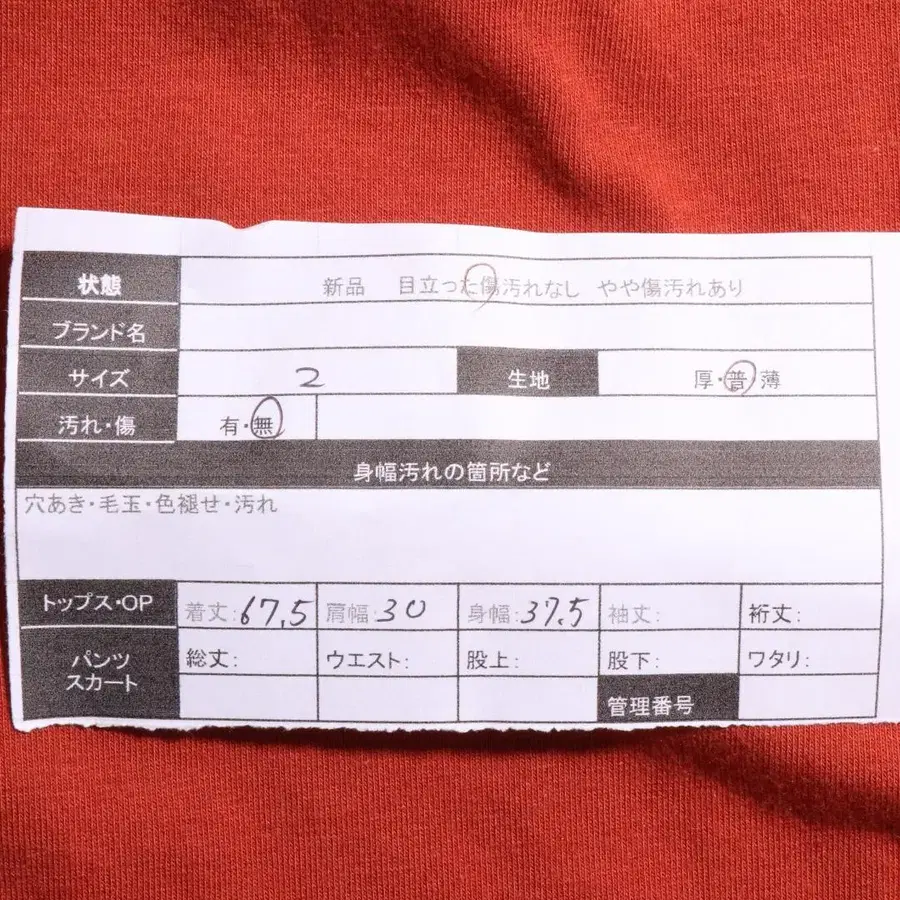 状態 新品 目立った傷汚れなし やや傷汚れあり
ブランド名
サイズ 2 生地 厚・普・薄
汚れ・傷 有・無
身幅汚れの箇所など
穴あき・毛玉・色褪せ・汚れ
トップス・OP 着丈:67.5 肩幅:30 身幅:37.5 袖丈: 裄丈:
パンツ スカート 総丈: ウエスト: 股上: 股下: ワタリ:
管理番号